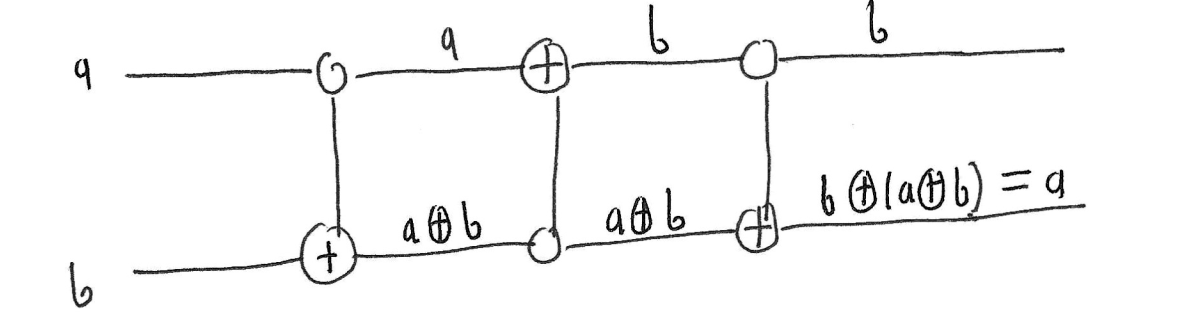 a a b b
a⊕b a⊕b b⊕(a⊕b) = a
b